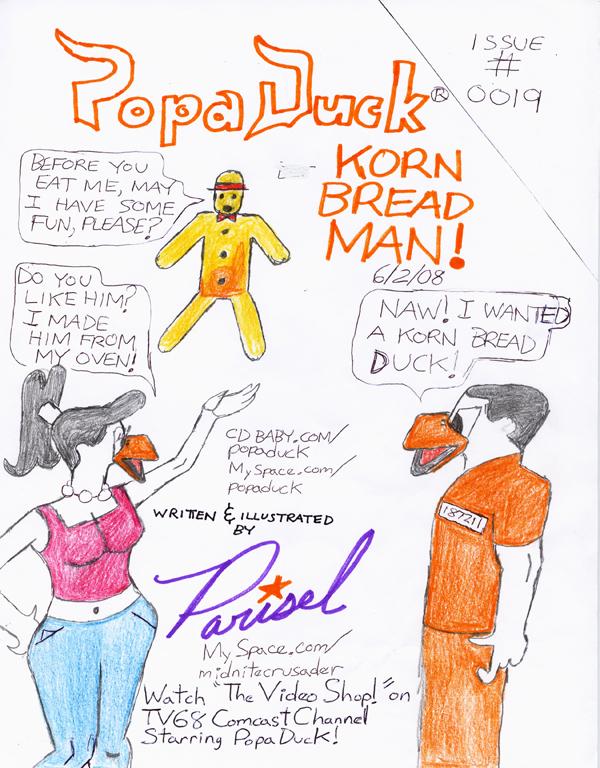 Popa Duck®
ISSUE
#
0019
KORN
BREAD
MAN!
6/2/08
BEFORE YOU
EAT ME, MAY
I HAVE SOME
FUN, PLEASE?
DO YOU
LIKE HIM?
I MADE
HIM FROM
MY OVEN!
NAW! I WANTED
A KORN BREAD
DUCK!
CD BABY.COM/
popaduck
MySpace.com/
popaduck
187211
WRITTEN & ILLUSTRATED
BY
Parisel
MySpace.com/
midnitecrusader
Watch "The Video Shop!" on
TV68 Comcast Channel
Starring Popa Duck!